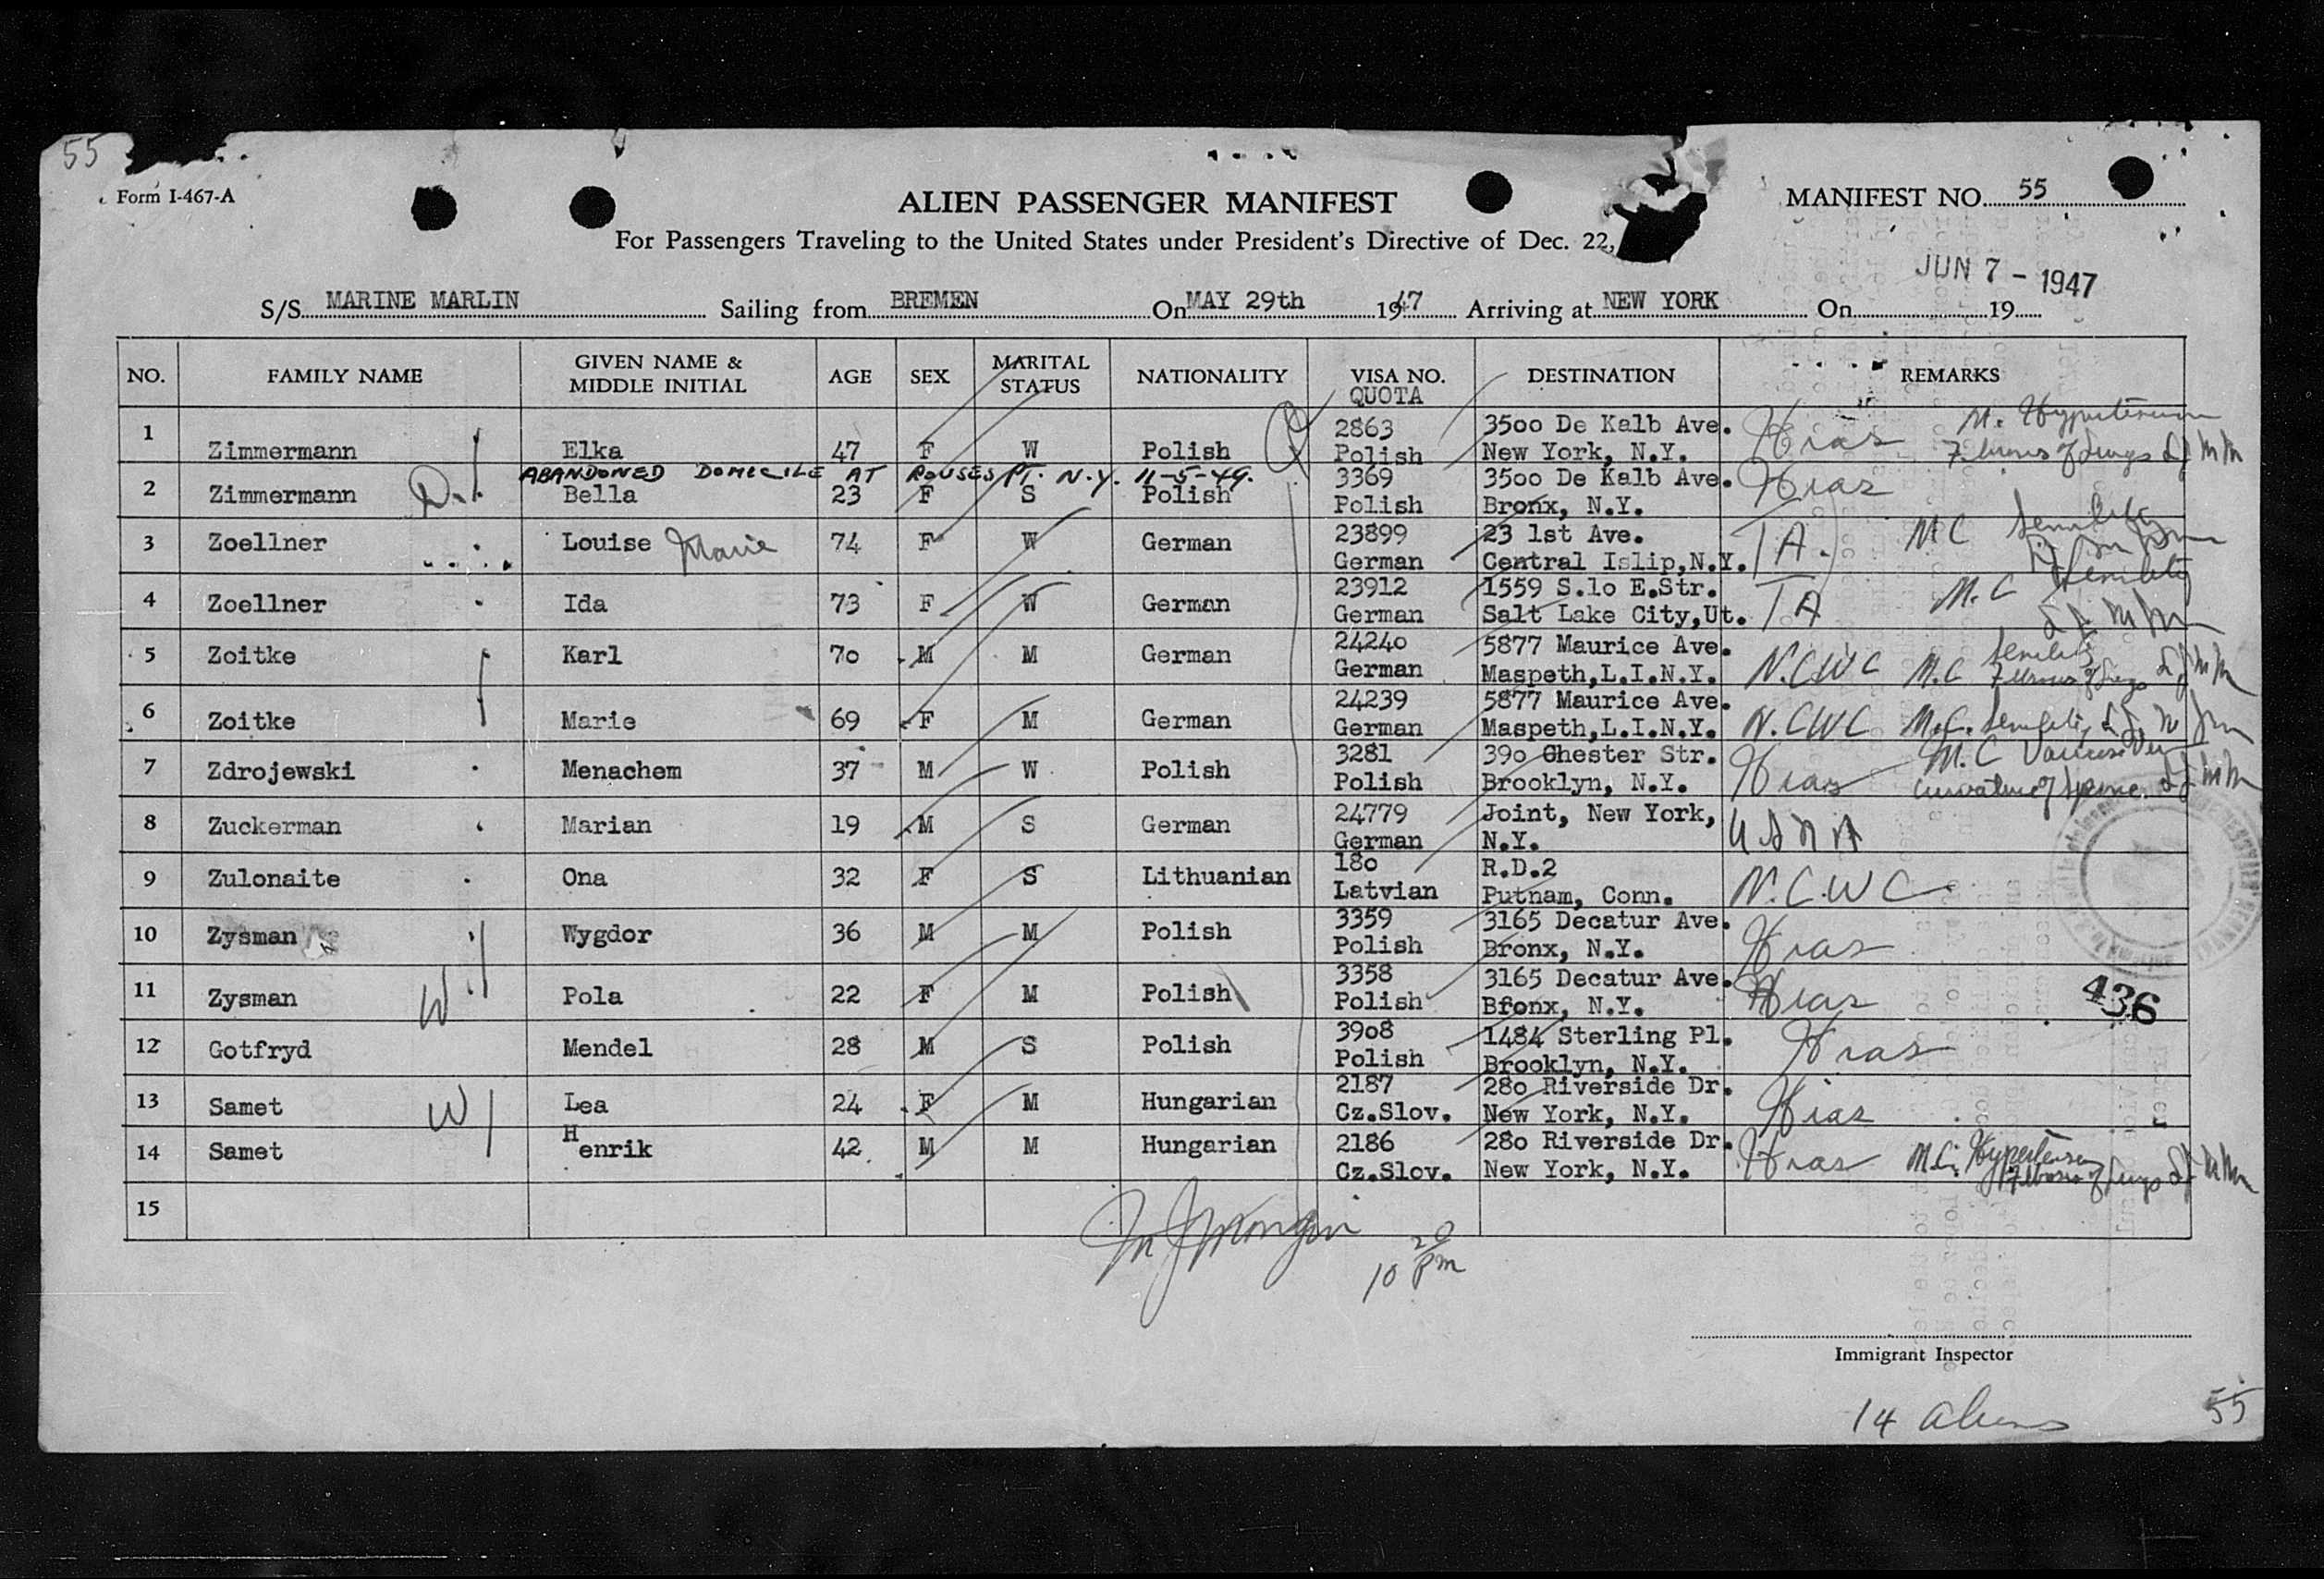 55
Form I-467-A
ALIEN PASSENGER MANIFEST
MANIFEST NO. 55
For Passengers Traveling to the United States under President's Directive of Dec. 22,
JUN 7 - 1947
S/S MARINE MARLIN Sailing from BREMEN On MAY 29th 1947 Arriving at NEW YORK On 19
NO. FAMILY NAME GIVEN NAME & MIDDLE INITIAL AGE SEX MARITAL STATUS NATIONALITY VISA NO. QUOTA DESTINATION REMARKS
1 Zimmermann Elka 47 F W Polish 2863 Polish 3500 De Kalb Ave. New York, N.Y. Hias M. Hypertension Fibrosis of Lungs
ABANDONED DOMICILE AT ROUSES PT. N.Y. 11-5-49.
2 Zimmermann D. Bella 23 F S Polish 3369 Polish 3500 De Kalb Ave. Bronx, N.Y. Hias
3 Zoellner Louise Marie 74 F W German 23899 German 23 1st Ave. Central Islip,N.Y. TA. MC Senility
4 Zoellner Ida 73 F W German 23912 German 1559 S.10 E.Str. Salt Lake City,Ut. TA M.C Senility
5 Zoitke Karl 70 M M German 24240 German 5877 Maurice Ave. Maspeth,L.I.N.Y. N.CWC M.C Senility Fibrosis of Lungs
6 Zoitke Marie 69 F M German 24239 German 5877 Maurice Ave. Maspeth,L.I.N.Y. N.CWC M.C. Senility
7 Zdrojewski Menachem 37 M W Polish 3281 Polish 390 Chester Str. Brooklyn, N.Y. Hias M.C Varicose Vein Curvature of Spine.
8 Zuckerman Marian 19 M S German 24779 German Joint, New York, N.Y. USNA
9 Zulonaite Ona 32 F S Lithuanian 180 Latvian R.D.2 Putnam, Conn. N.C.W.C
10 Zysman Wygdor 36 M M Polish 3359 Polish 3165 Decatur Ave. Bronx, N.Y. Hias
11 Zysman W Pola 22 F M Polish 3358 Polish 3165 Decatur Ave. Bronx, N.Y. Hias
436
12 Gotfryd Mendel 28 M S Polish 3908 Polish 1484 Sterling Pl. Brooklyn, N.Y. Hias
13 Samet W Lea 24 F M Hungarian 2187 Cz.Slov. 280 Riverside Dr. New York, N.Y. Hias
14 Samet Henrik 42 M M Hungarian 2186 Cz.Slov. 280 Riverside Dr. New York, N.Y. Hias M.C. Hypertension Fibrosis of Lungs
15
10 20 PM
Immigrant Inspector
14 aliens
55